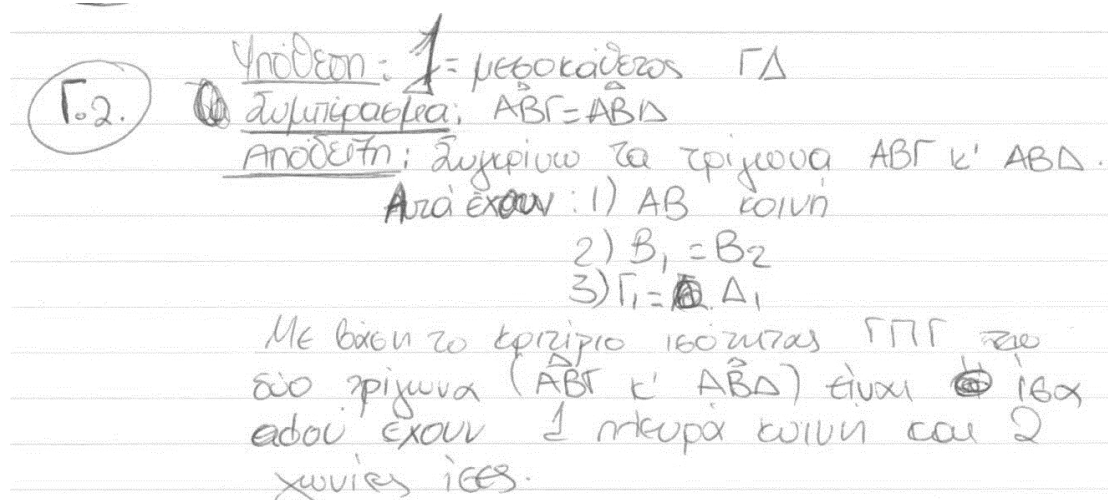 Γ.2.
Υπόθεση: 1 = μεσοκάθετος ΓΔ
Συμπέρασμα: ΑΒ̂Γ=ΑΒ̂Δ
Απόδειξη: Συγκρίνω τα τρίγωνα ΑΒΓ κ' ΑΒΔ.
Αυτά έχουν: 1) ΑΒ κοινή
2) Β₁ = Β₂
3) Γ₁ = Δ₁
Με βάση το κριτίριο ισότητας ΓΠΓ τα
δύο τρίγωνα (ΑΒ̂Γ κ' ΑΒ̂Δ) είναι ίσα
αφού έχουν 1 πλευρά κοινή και 2
γωνίες ίσες.